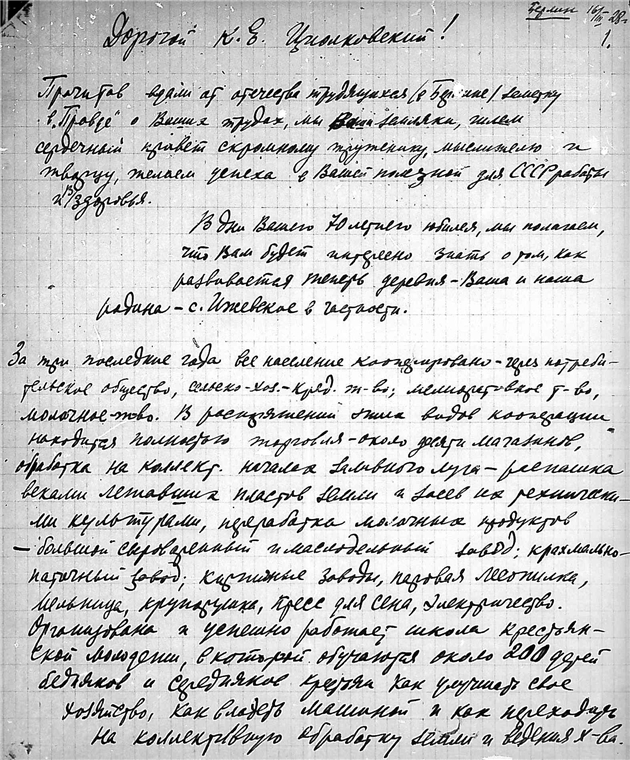 Берлин 16/III-28 г.
1.
Дорогой К. Е. Циолковский!
Прочитав вдали от отечества трудящихся (в Берлине) заметку
в "Правде" о Ваших трудах, мы земляки, шлем
сердечный привет скромному труженику, мыслителю и
творцу, желаем успеха в Вашей полезной для СССР работы
и здоровья.
В дни Вашего 70 летнего юбилея, мы полагаем,
что Вам будет интересно знать о том, как
развивается теперь деревня - Ваша и наша
родина - с. Ижевское в частности.
За три последние года все население кооперировано - через потреби-
тельское общество, сельско-хоз.-кред. т-во; мелиоративное т-во,
молочное т-во. В распоряжении этих видов кооперации
находится полностью торговля - около десяти магазинов,
обработка на коллект. началах заливного луга - распашка
веками лежавших пластов земли и засев их технически-
ми культурами, переработка молочных продуктов
- большой сыроваренный и маслодельный завод; крахмально-
паточный завод; кирпичные заводы, паровая лесопилка,
мельница, крупорушка, пресс для сена, электричество.
Организована и успешно работает школа крестьян-
ской молодежи, в которой обучаются около 200 детей
бедняков и середняков крестьян как улучшать свое
хозяйство, как владеть машиной и как переходить
на коллективную обработку земли и ведения х-ва.